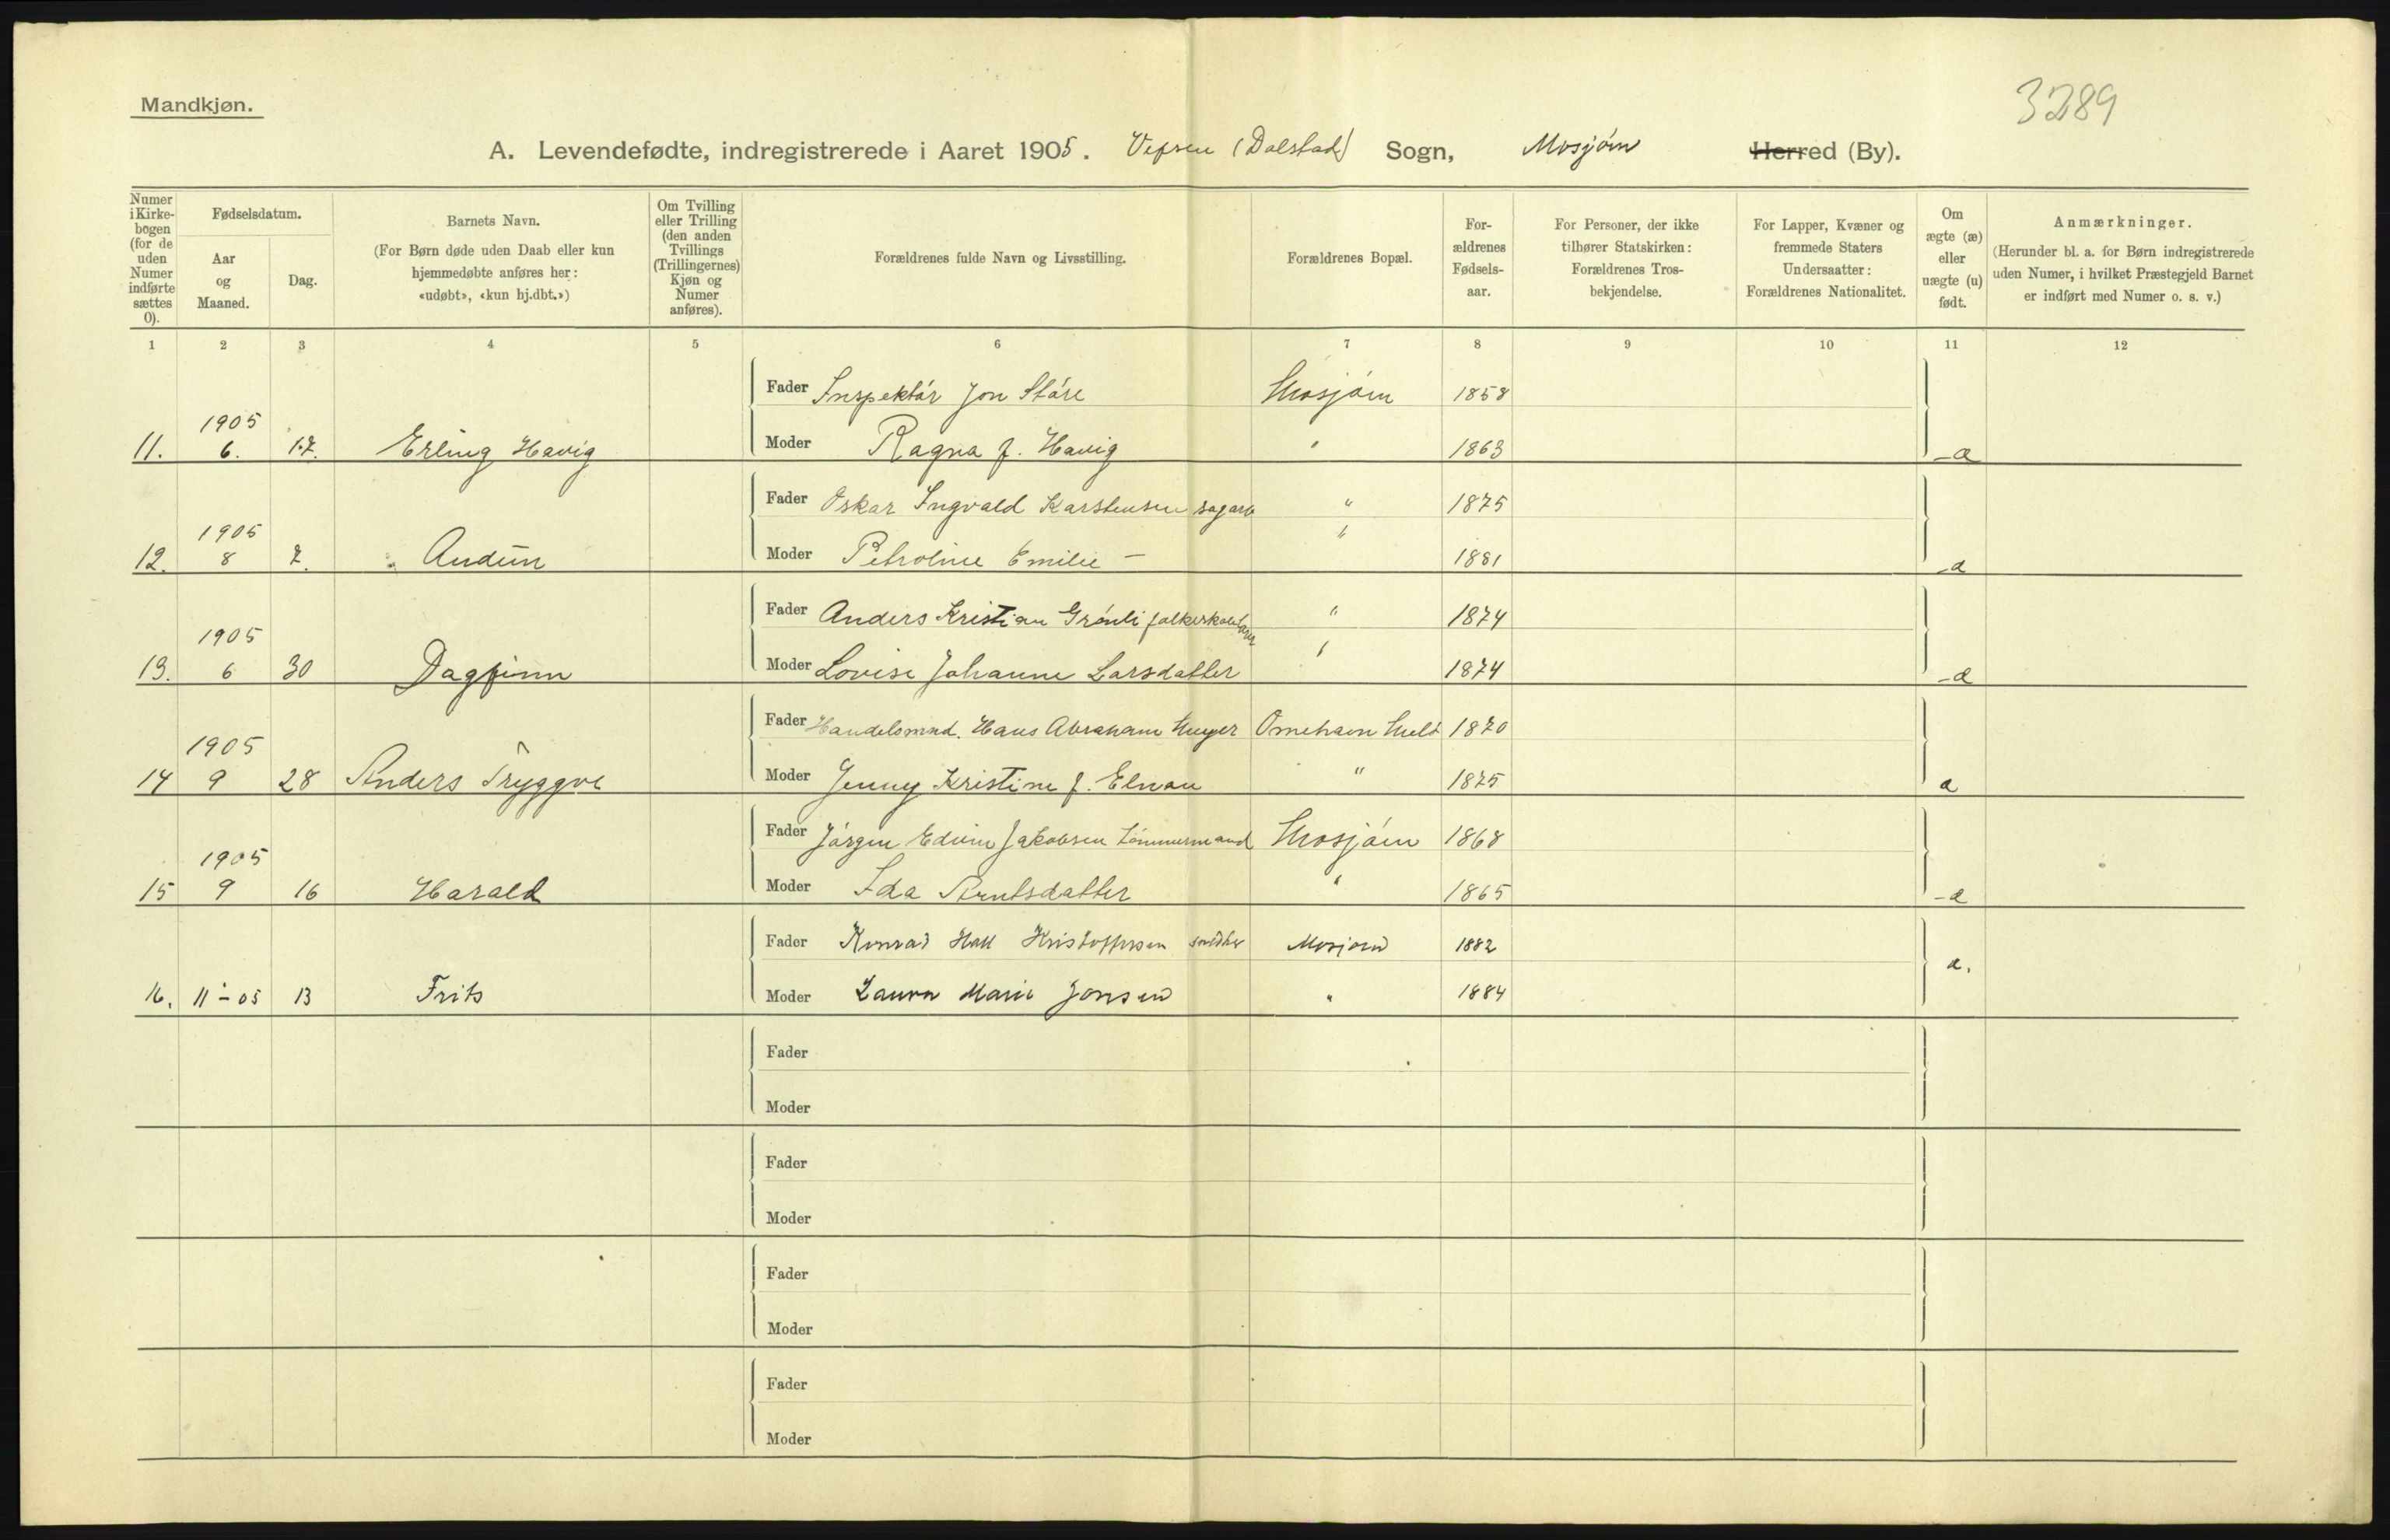 3289
Mandkjøn.
A. Levendefødte, indregistrerede i Aaret 1905. Vefsen (Dolstad) Sogn, Mosjøen Herred (By).
Numer i Kirkebogen (for de uden Numer indførte sættes 0).
Fødselsdatum.
Aar og Maaned.
Dag.
Barnets Navn.
(For Børn døde uden Daab eller kun hjemmedøbte anføres her: «udøbt», «kun hj.dbt.»)
Om Tvilling eller Trilling (den anden Tvillings (Trillingernes) Kjøn og Numer anføres).
Forældrenes fulde Navn og Livsstilling.
Forældrenes Bopæl.
Forældrenes Fødselsaar.
For Personer, der ikke tilhører Statskirken: Forældrenes Trosbekjendelse.
For Lapper, Kvæner og fremmede Staters Undersaatter: Forældrenes Nationalitet.
Om ægte (æ) eller uægte (u) født.
Anmærkninger.
(Herunder bl. a. for Børn indregistrerede uden Numer, i hvilket Præstegjeld Barnet er indført med Numer o. s. v.)
1 2 3 4 5 6 7 8 9 10 11 12
Fader Inspektør Jon Støre Mosjøen 1858
11. 1905 6. 17. Erling Havig Moder Ragna f. Havig " 1863 æ
Fader Oskar Ingvald Karstensen sagarb " 1875
12. 1905 8 7. Audun Moder Petroline Emilie — " 1881 æ
Fader Anders Kristian Grønli folkeskolelærer " 1874
13. 1905 6 30 Dagfinn Moder Lovise Johanne Larsdatter " 1874 æ
Fader Handelsmnd. Hans Abraham Meyer 1870
14 1905 9 28 Anders Tryggve Moder Jenny Kristine f. " 1875 æ
Fader Jørgen Edvin Jakobsen tømmermand Mosjøen 1868
15 1905 9 16 Harald Moder Ida Arntsdatter " 1865 æ
Fader Konrad Hall Kristoffersen Mosjøen 1882
16. 11-05 13 Frits Moder Laura Marie Jonsen " 1884 æ.
Fader
Moder
Fader
Moder
Fader
Moder
Fader
Moder